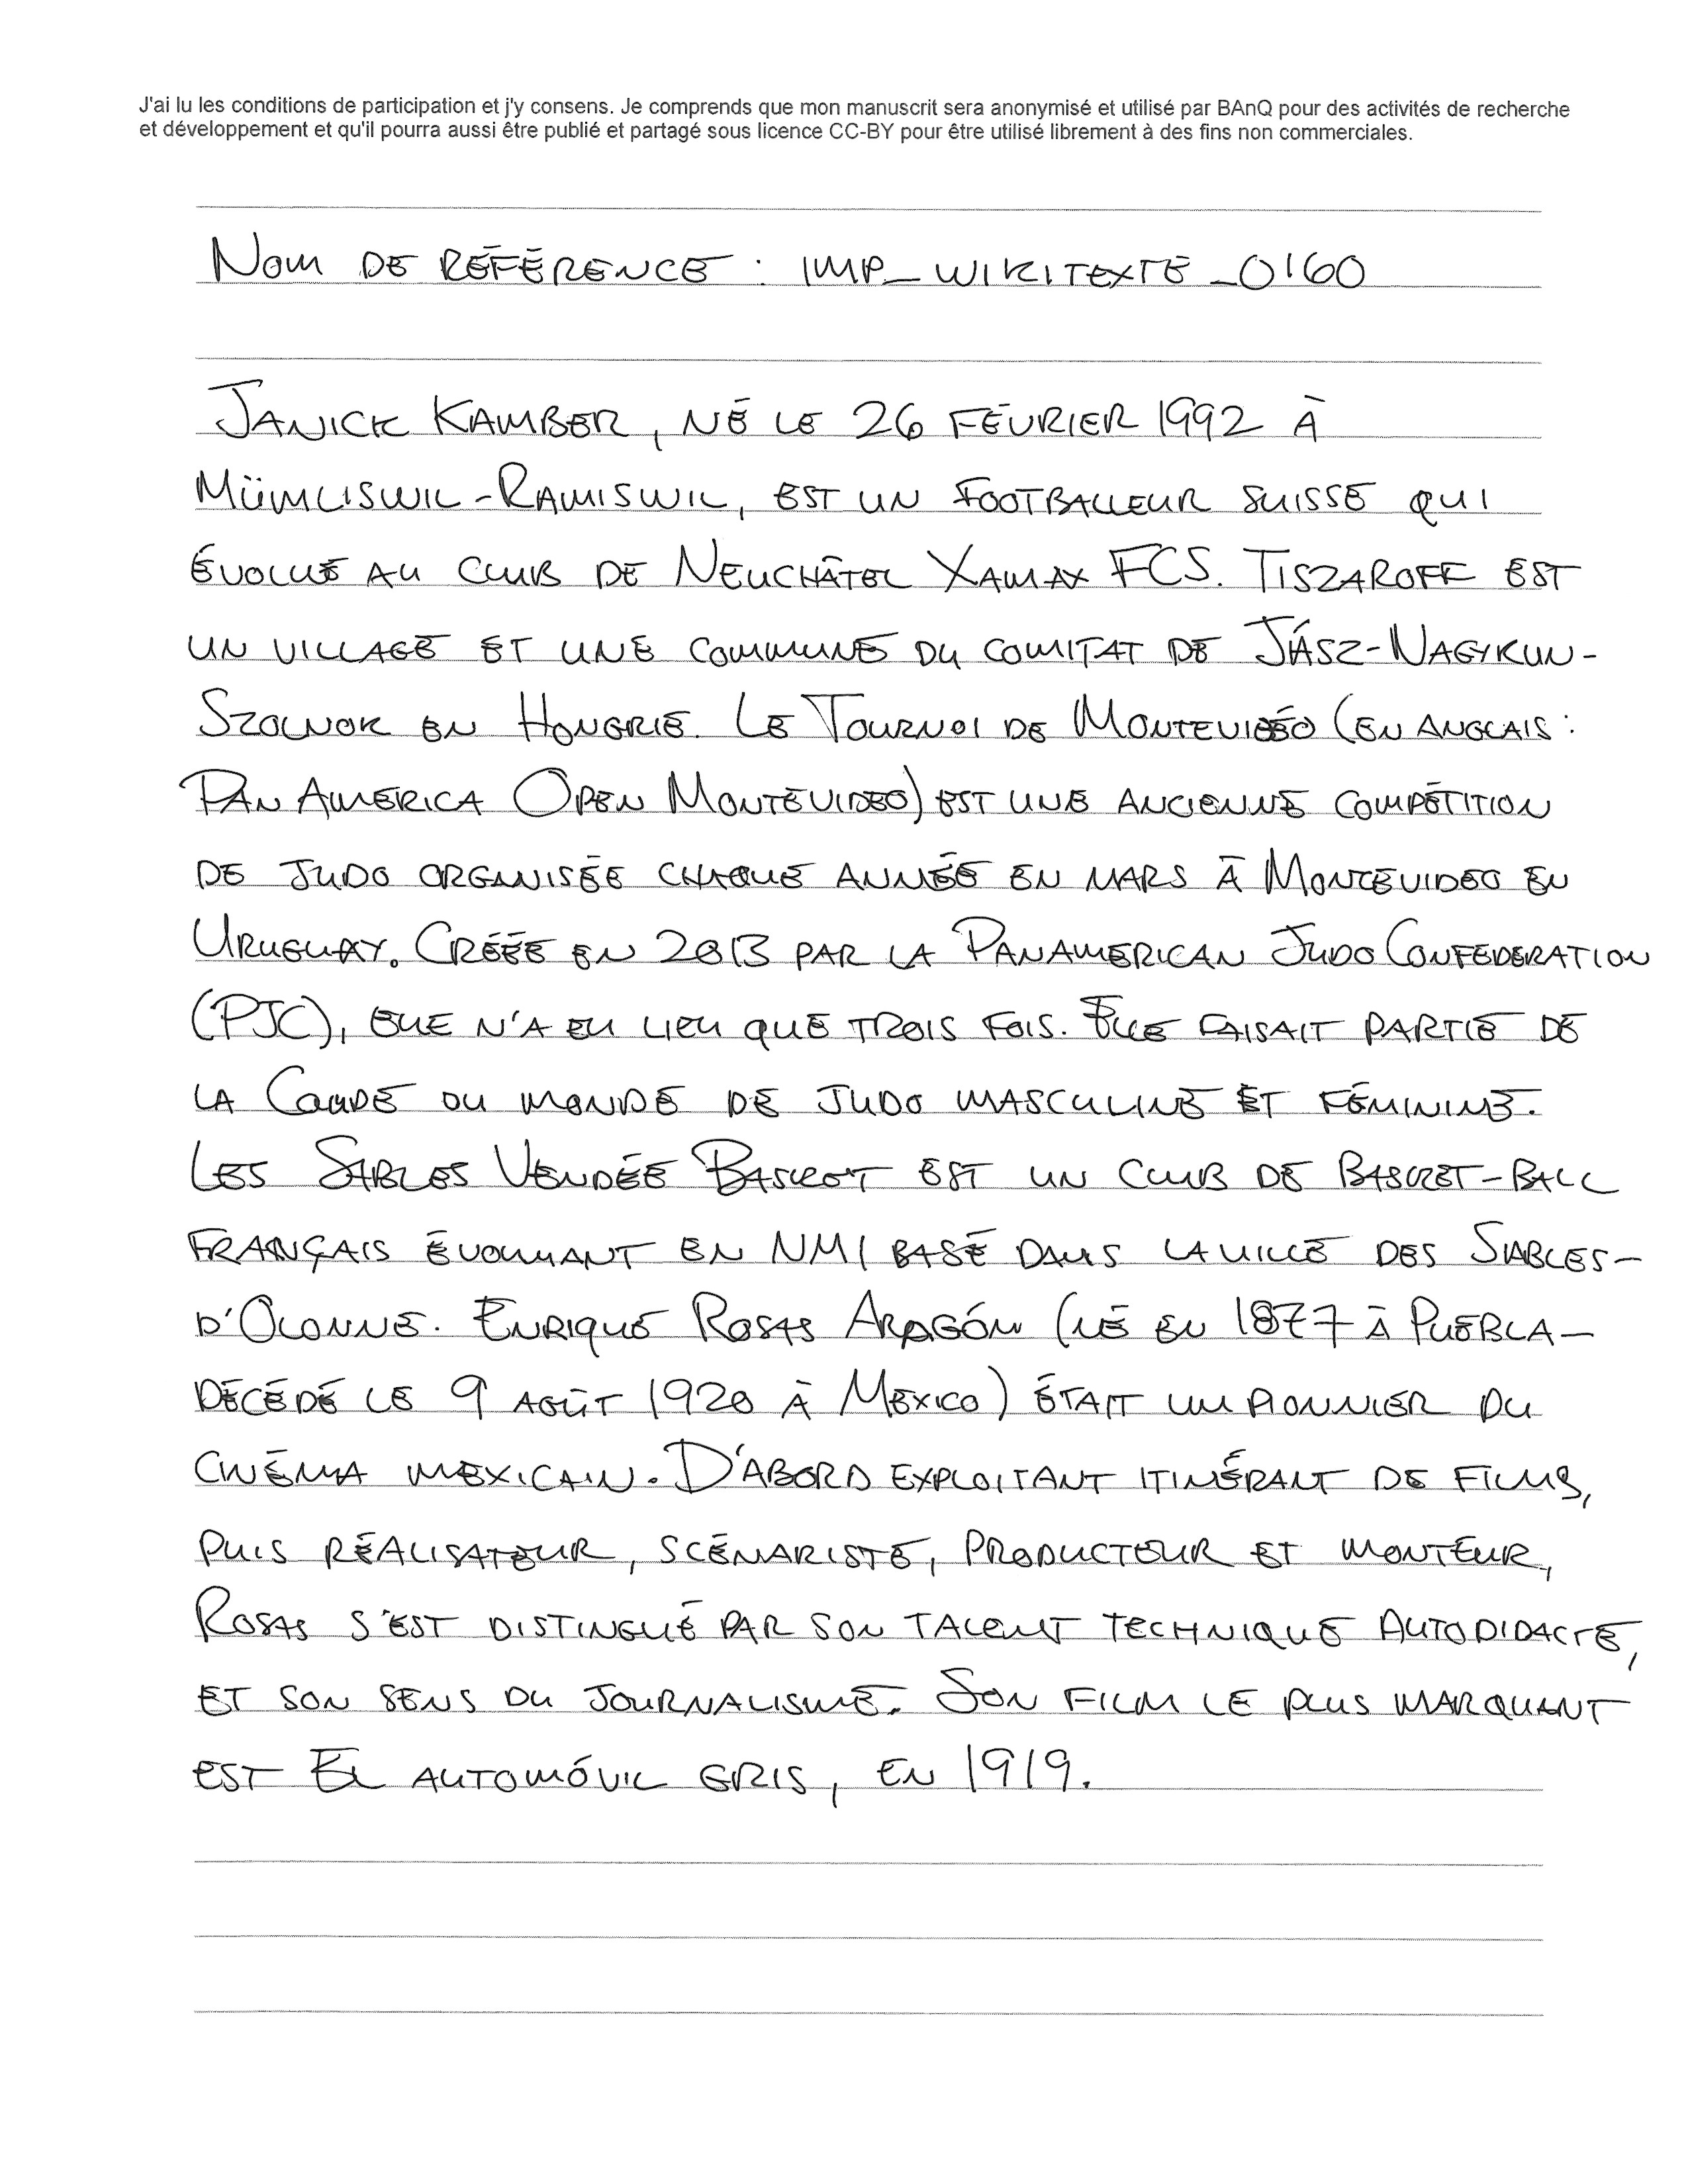 J'ai lu les conditions de participation et j'y consens. Je comprends que mon manuscrit sera anonymisé et utilisé par BAnQ pour des activités de recherche
et développement et qu'il pourra aussi être publié et partagé sous licence CC-BY pour être utilisé librement à des fins non commerciales.
NOM DE RÉFÉRENCE : IMP_WIKITEXTE_0160
JANICK KAMBER, NÉ LE 26 FÉVRIER 1992 À
MÜMLISWIL-RAMISWIL, EST UN FOOTBALLEUR SUISSE QUI
ÉVOLUE AU CLUB DE NEUCHÂTEL XAMAX FCS. TISZAROFF EST
UN VILLAGE ET UNE COMMUNE DU COMITAT DE JÁSZ-NAGYKUN-
SZOLNOK EN HONGRIE. LE TOURNOI DE MONTEVIDÉO (EN ANGLAIS :
PAN AMERICA OPEN MONTEVIDEO) EST UNE ANCIENNE COMPÉTITION
DE JUDO ORGANISÉE CHAQUE ANNÉE EN MARS À MONTEVIDEO EN
URUGUAY. CRÉÉE EN 2013 PAR LA PANAMERICAN JUDO CONFEDERATION
(PJC), ELLE N'A EU LIEU QUE TROIS FOIS. ELLE FAISAIT PARTIE DE
LA COUPE DU MONDE DE JUDO MASCULINE ET FÉMININE.
LES SABLES VENDÉE BASKET EST UN CLUB DE BASKET-BALL
FRANÇAIS ÉVOLUANT EN NM1 BASÉ DANS LA VILLE DES SABLES-
D'OLONNE. ENRIQUE ROSAS ARAGÓN (NÉ EN 1877 À PUEBLA -
DÉCÉDÉ LE 9 AOÛT 1920 À MEXICO) ÉTAIT UN PIONNIER DU
CINÉMA MEXICAIN. D'ABORD EXPLOITANT ITINÉRANT DE FILMS,
PUIS RÉALISATEUR, SCÉNARISTE, PRODUCTEUR ET MONTEUR,
ROSAS S'EST DISTINGUÉ PAR SON TALENT TECHNIQUE AUTODIDACTE,
ET SON SENS DU JOURNALISME. SON FILM LE PLUS MARQUANT
EST EL AUTOMÓVIL GRIS, EN 1919.